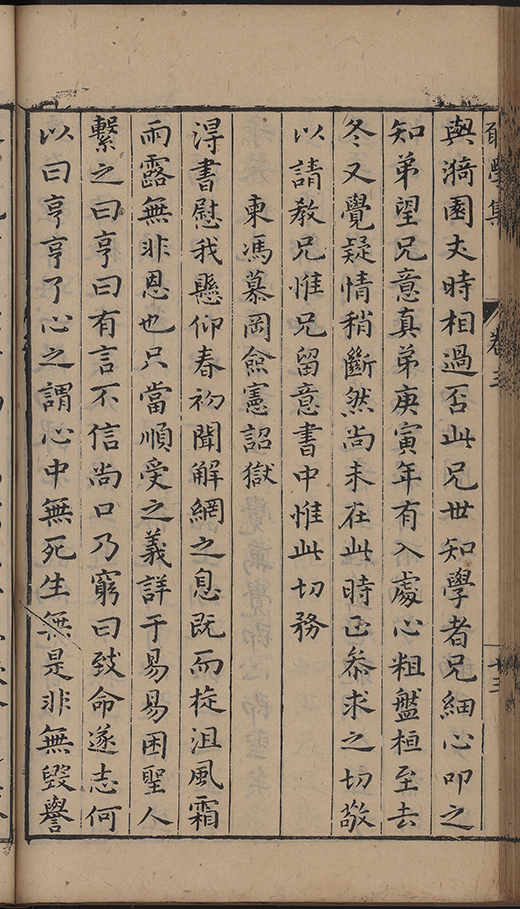 學集
卷三
十三
與漪園丈時相過否此兄世知學者兄細心叩之
知弟望兄意真弟庚寅年有入處心粗盤桓至去
冬又覺疑情稍斷然尚未在此時正叅求之切敬
以請教兄惟兄留意書中惟此切務
柬馮慕岡僉憲詔獄
淂書慰我懸仰春初聞解網之息既而旋沮風霜
雨露無非恩也只當順受之義詳于易易困聖人
繫之曰亨曰有言不信尚口乃窮曰致命遂志何
以曰亨亨了心之謂心中無死生無是非無毀譽